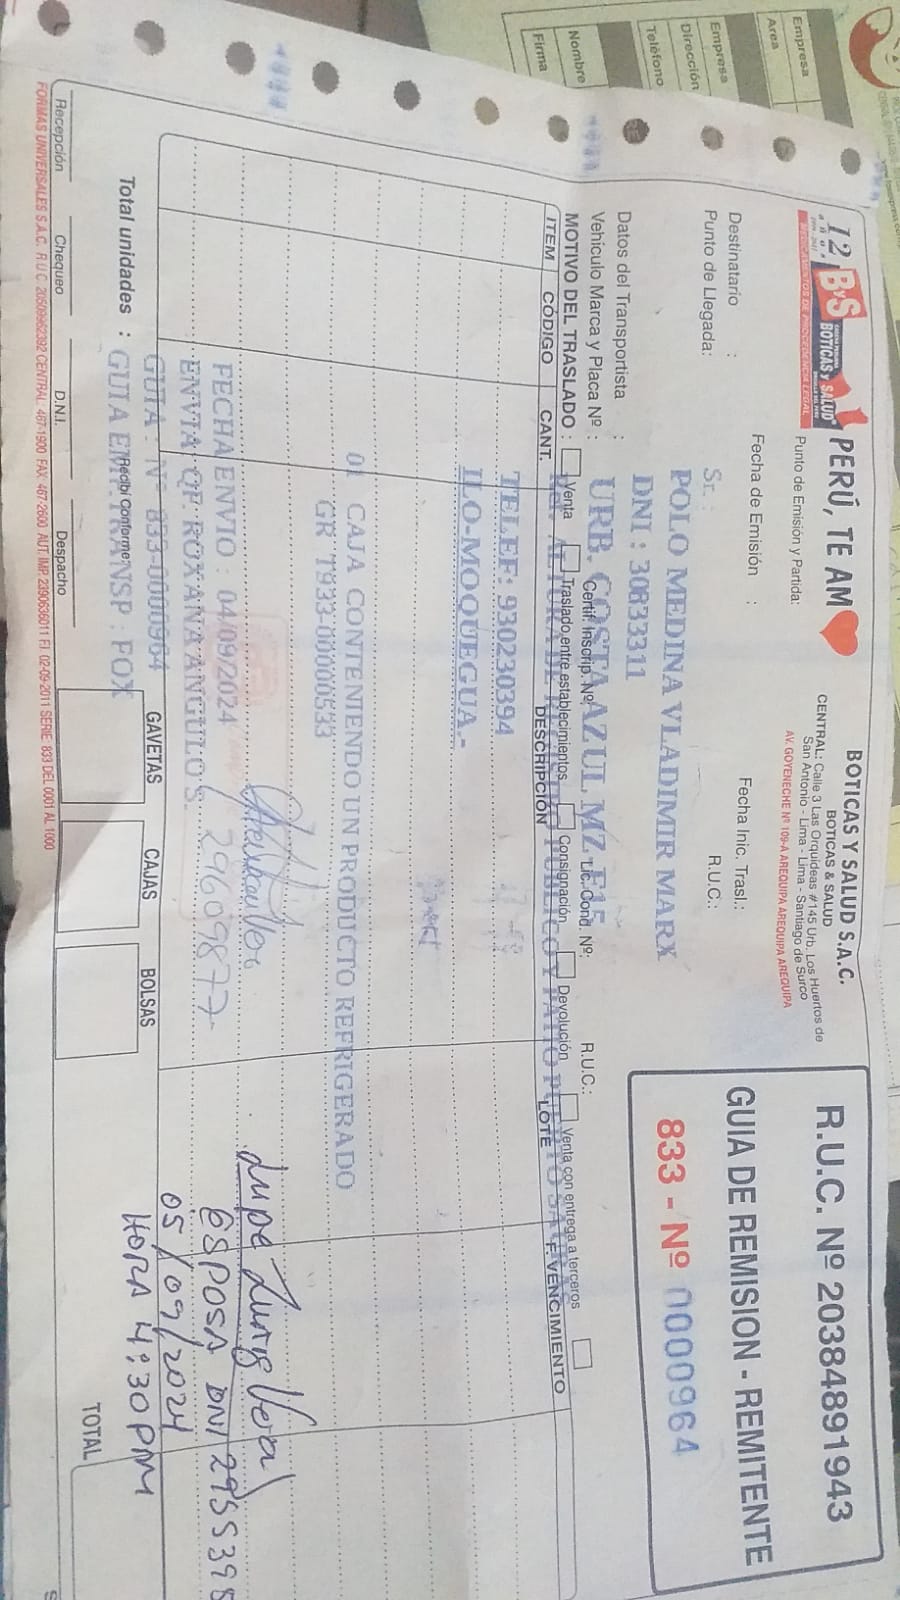 12 años
B&S BOTICAS y SALUD
MEDICAMENTOS DE PROCEDENCIA LEGAL
PERÚ, TE AM❤
BOTICAS Y SALUD S.A.C.
BOTICAS & SALUD
CENTRAL: Calle 3 Las Orquideas #145 Urb. Los Huertos de
San Antonio - Lima - Lima - Santiago de Surco
AV. GOYENECHE Nº 109-A AREQUIPA AREQUIPA AREQUIPA
R.U.C. Nº 20384891943
GUIA DE REMISION - REMITENTE
833 - Nº 0000964
Punto de Emisión y Partida:
Fecha de Emisión :
Fecha Inic. Trasl.:
Destinatario :
Sr :
R.U.C.:
Punto de Llegada:
POLO MEDINA VLADIMIR MARX
DNI : 30833311
Datos del Transportista :
URB. COSTA AZUL MZ E15
R.U.C.:
Vehículo Marca y Placa Nº :
Certif. Inscrip. Nº
Lic. Cond. Nº:
MOTIVO DEL TRASLADO :
Venta
Traslado entre establecimientos
Consignación
Devolución
Venta con entrega a terceros
ITEM CÓDIGO CANT. DESCRIPCIÓN LOTE F. VENCIMIENTO
TELEF: 930230394
ILO-MOQUEGUA.-
01 CAJA CONTENIENDO UN PRODUCTO REFRIGERADO
GR T933-00000533
FECHA ENVIO : 04/09/2024
ENVIA: QF. ROXANA ANGULO S.
29609877
GUIA : Nº 833-0000964
GUIA EMP.TRANSP : FOX
Lupe Zuñig Vera
ESPOSA DNI 2955398
05/09/2024
HORA 4:30 PM
Total unidades :
Recibí Conforme
GAVETAS
CAJAS
BOLSAS
TOTAL
Recepción
Chequeo
D.N.I.
Despacho
FORMAS UNIVERSALES S.A.C. R.U.C 20509962392 CENTRAL 467-1900 FAX: 467-2600 AUT. IMP. 2390636011 F.I. 02-09-2011 SERIE: 833 DEL 0001 AL 1000
Empresa
Area
Empresa
Dirección
Teléfono
Nombre
Firma